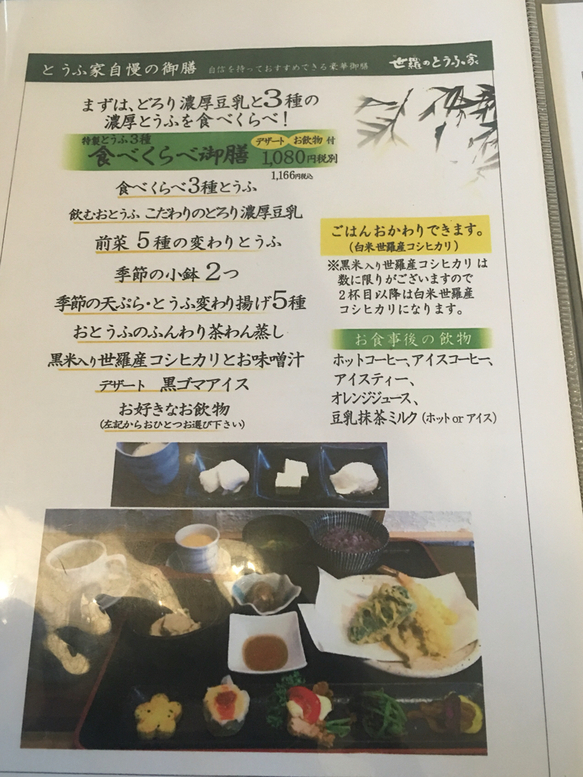 とうふ家自慢の御膳 自信を持っておすすめできる豪華御膳 世羅のとうふ家
まずは、どろり濃厚豆乳と3種の
濃厚とうふを食べくらべ！
特製とうふ3種 デザート お飲物 付
食べくらべ御膳 1,080円税別
1,166円税込
食べくらべ3種とうふ
飲むおとうふ こだわりのどろり濃厚豆乳
前菜 5種の変わりとうふ
季節の小鉢 2つ
季節の天ぷら・とうふ変わり揚げ5種
おとうふのふんわり茶わん蒸し
黒米入り世羅産コシヒカリとお味噌汁
デザート 黒ゴマアイス
お好きなお飲物
(左記からおひとつお選び下さい)
ごはんおかわりできます。
(白米世羅産コシヒカリ)
※黒米入り世羅産コシヒカリは
数に限りがございますので
2杯目以降は白米世羅産
コシヒカリになります。
お食事後の飲物
ホットコーヒー、アイスコーヒー、
アイスティー、
オレンジジュース、
豆乳抹茶ミルク (ホット or アイス)